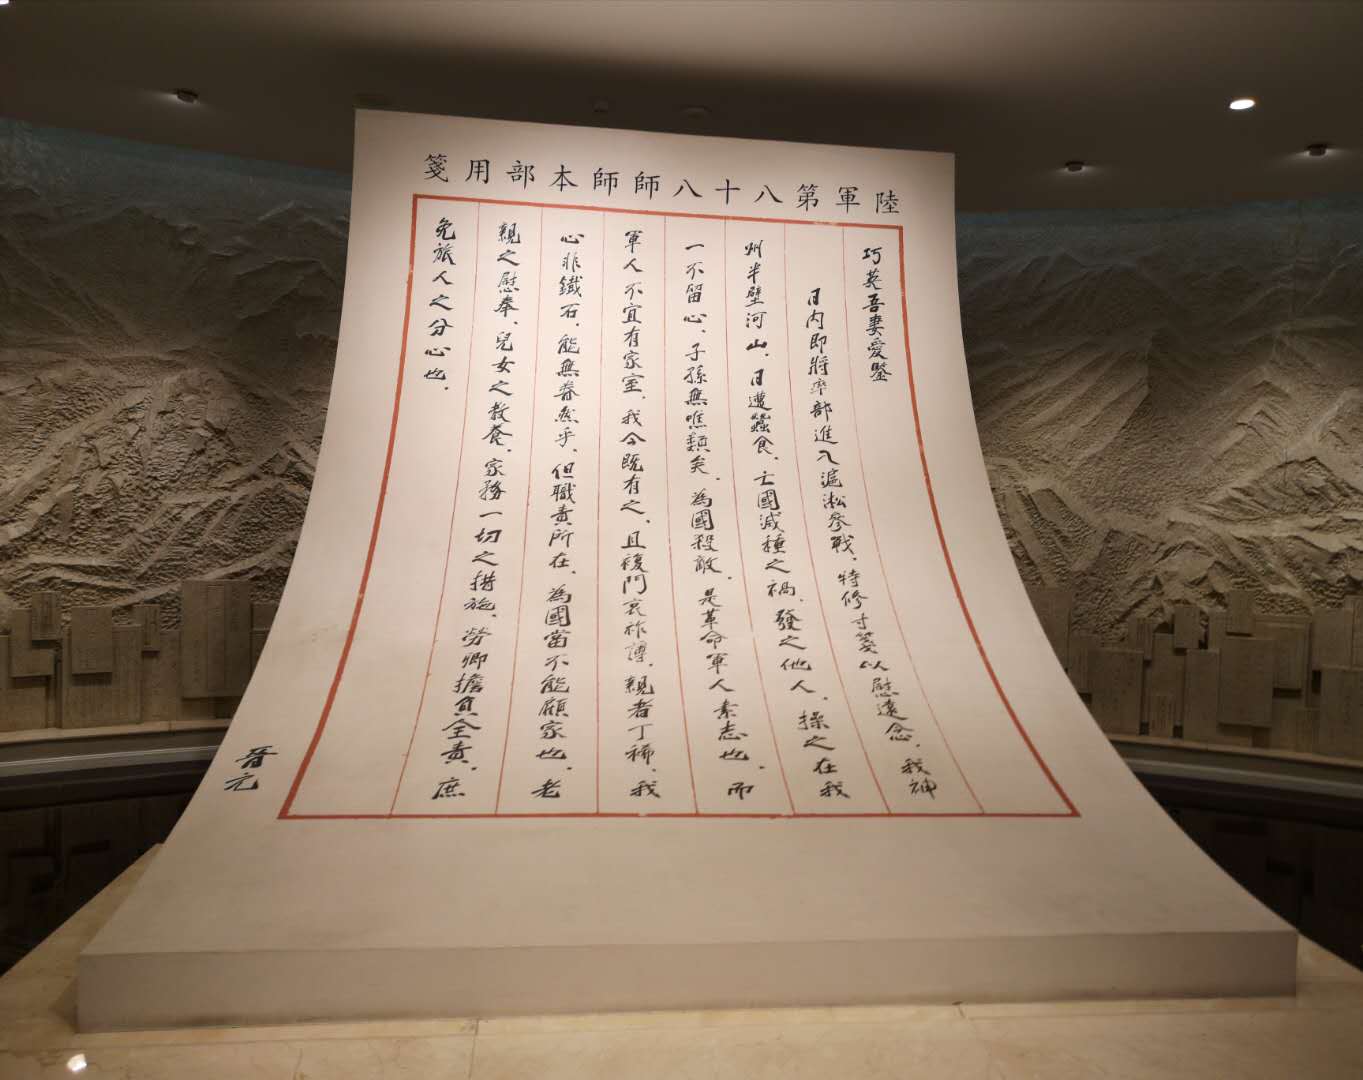 陸軍第八十八師師本部用箋
巧英吾妻愛鑒
日内即將率部進入滬淞參戰、特修寸箋以慰遠念、我神
州半壁河山、日遭蠶食、亡國滅種之禍、發之他人、操之在我
一不留心、子孫無噍類矣、為國殺敵、是革命軍人素志也、而
軍人不宜有家室、我今既有之、且複門衰祚薄、親者丁稀、我
心非鐵石、能無眷然乎、但職責所在、為國當不能顧家也、老
親之慰奉、兒女之教養、家務一切之措施、勞卿擔負全責、庶
免旅人之分心也、
晉元